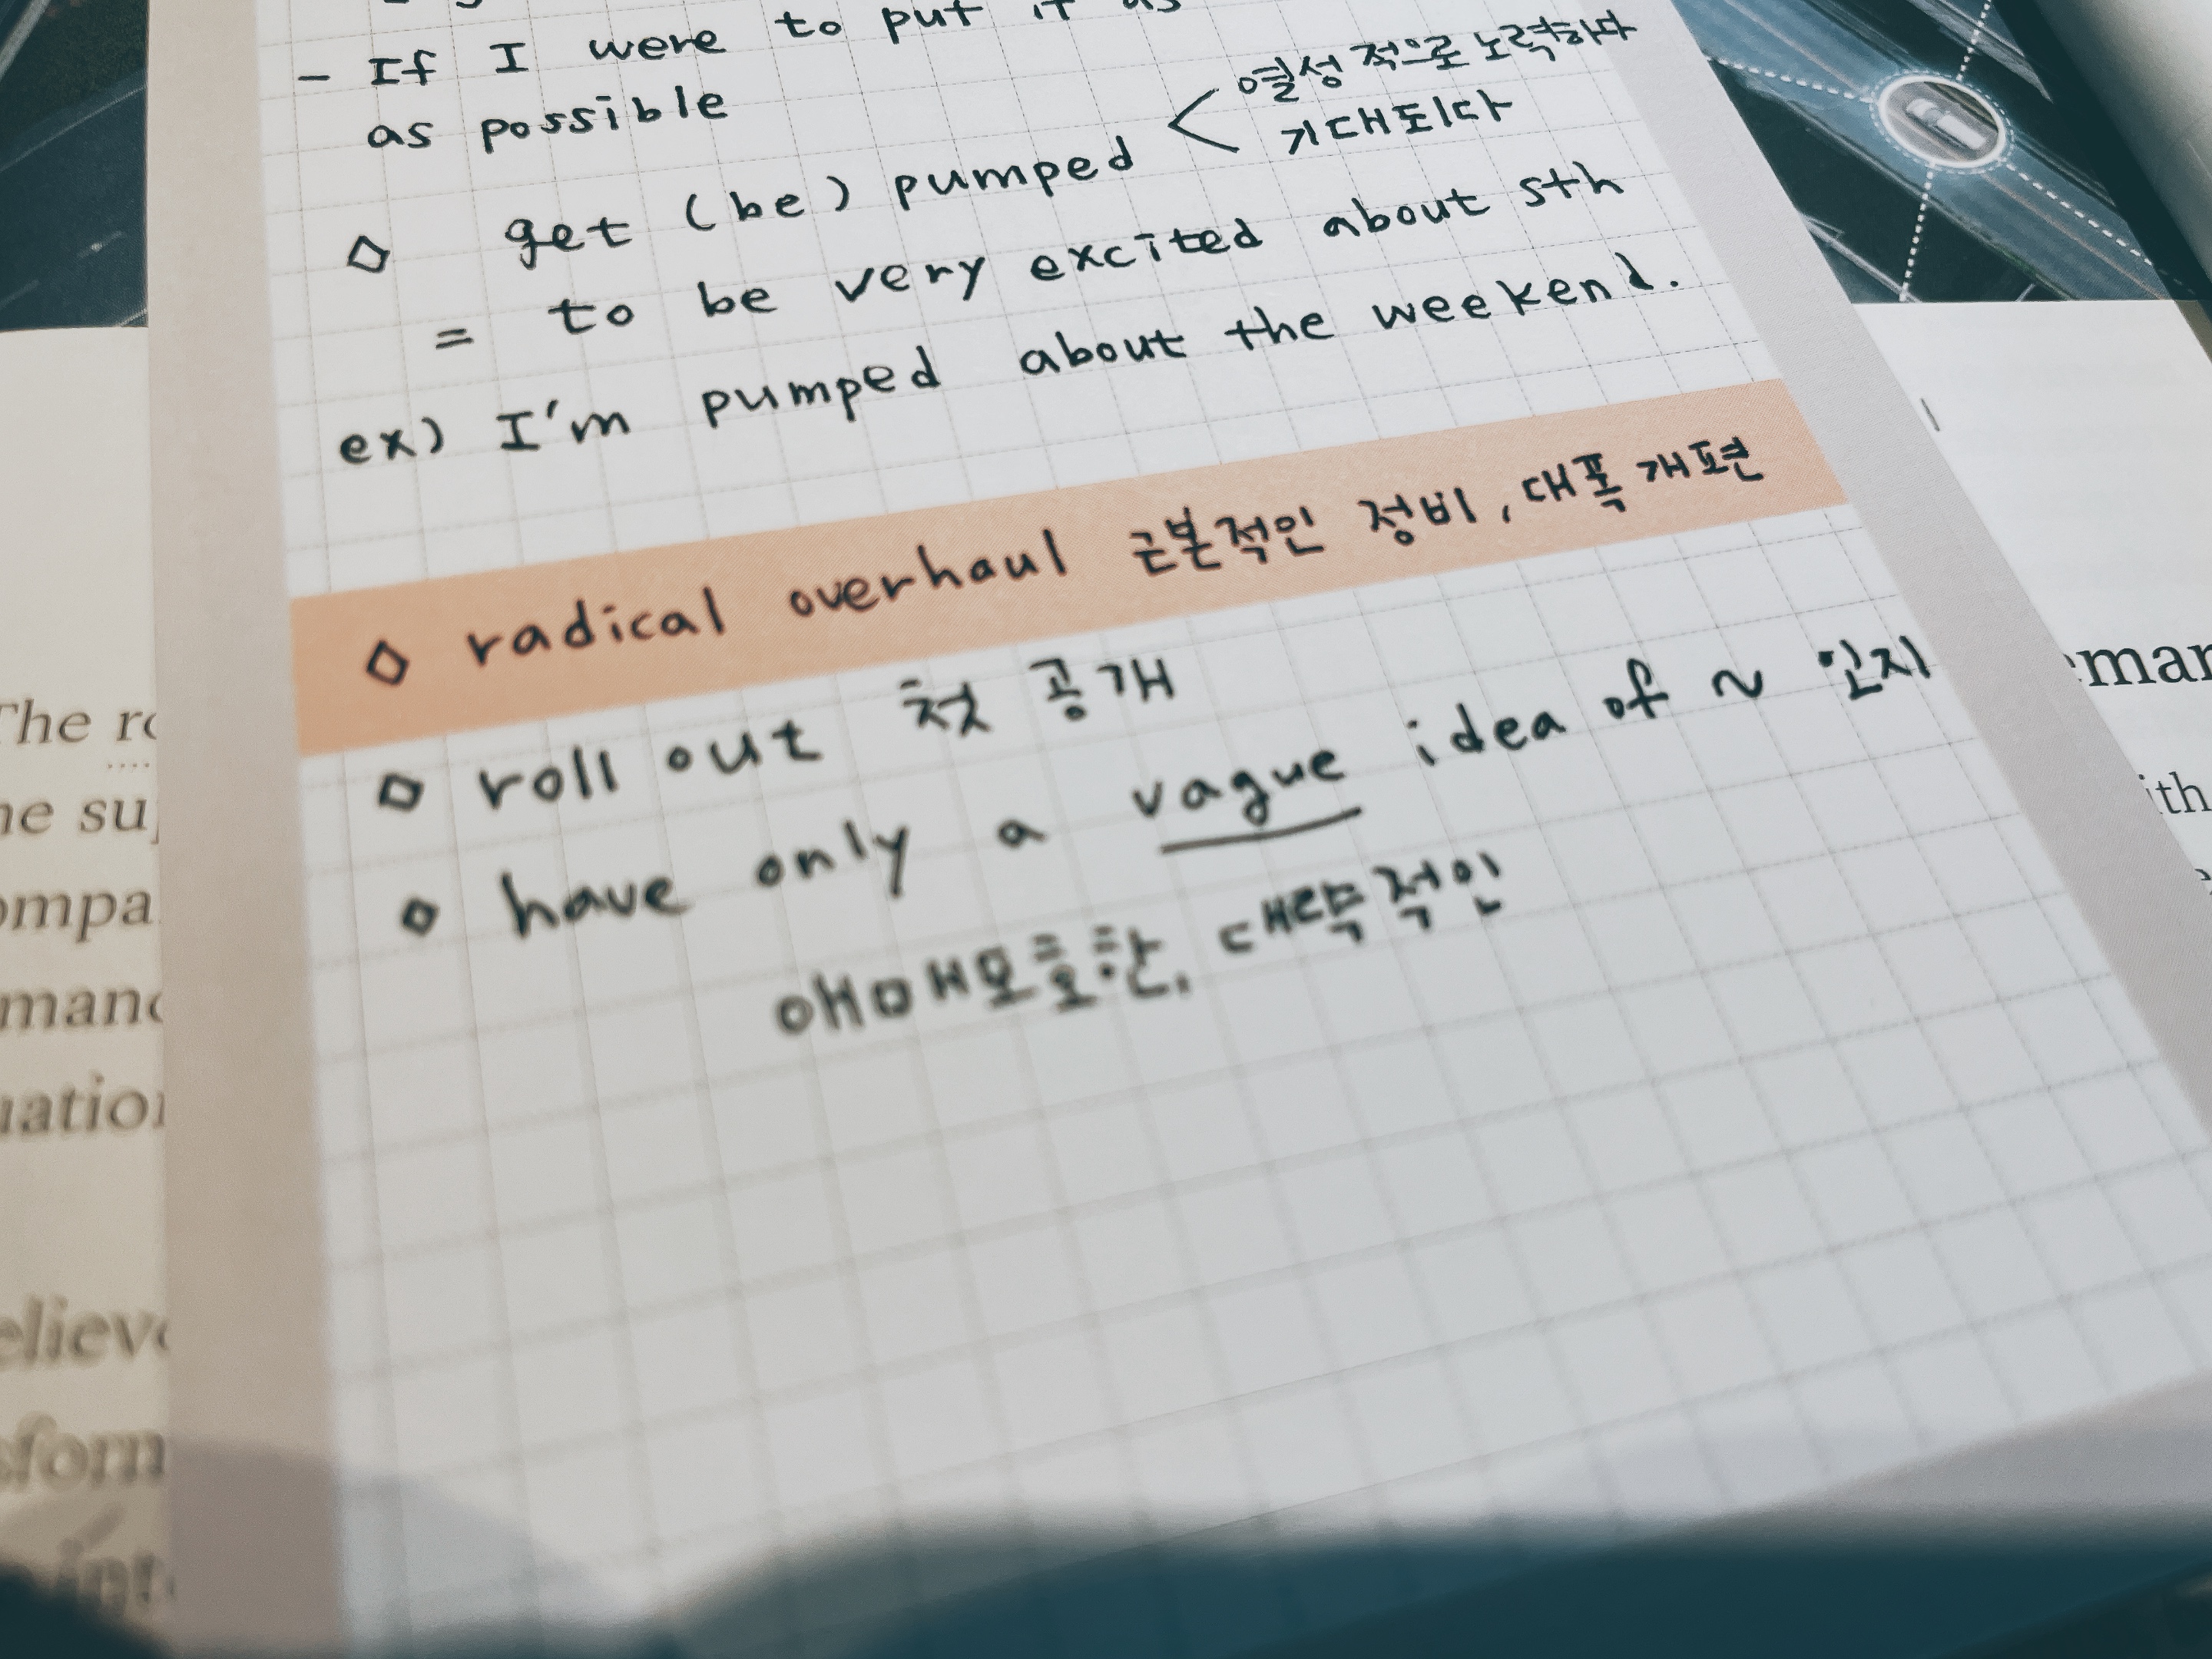 - If I were to put it as
as possible
◇ get (be) pumped < 열성적으로 노력하다
기대되다
= to be very excited about sth
ex) I'm pumped about the weekend.
◇ radical overhaul 근본적인 정비, 대폭 개편
◇ roll out 첫 공개
◇ have only a vague idea of ~ 인지
애매모호한, 대략적인
The